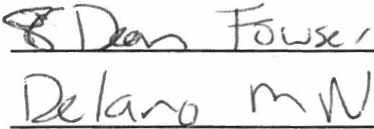 8 Dean Fowser
Delano MN